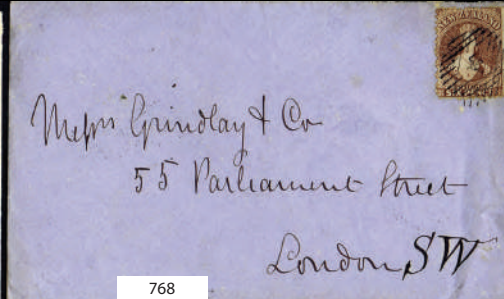 NEW ZEALAND
Messrs Grindlay & Co
55 Parliament Street
London SW
768